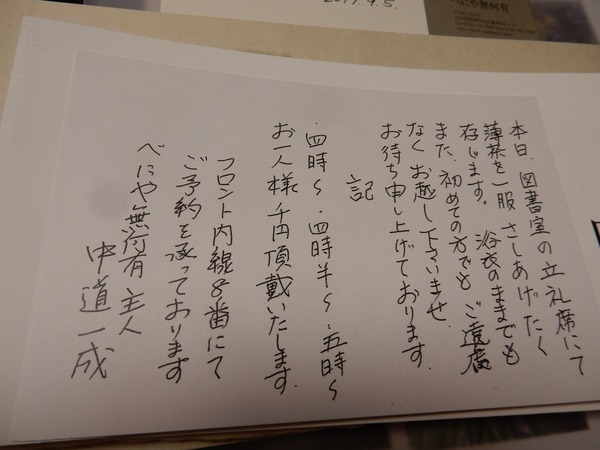 2017.9.5.
べにや無何有
本日、図書室の立礼席にて
薄茶を一服さしあげたく
存じます。浴衣のままでも
また、初めての方でもご遠慮
なくお越し下さいませ。
お待ち申し上げております。
記
・四時〜・四時半〜・五時〜
お一人様千円頂戴いたします。
フロント内線8番にて
ご予約を承っております
べにや無何有 主人
中道一成